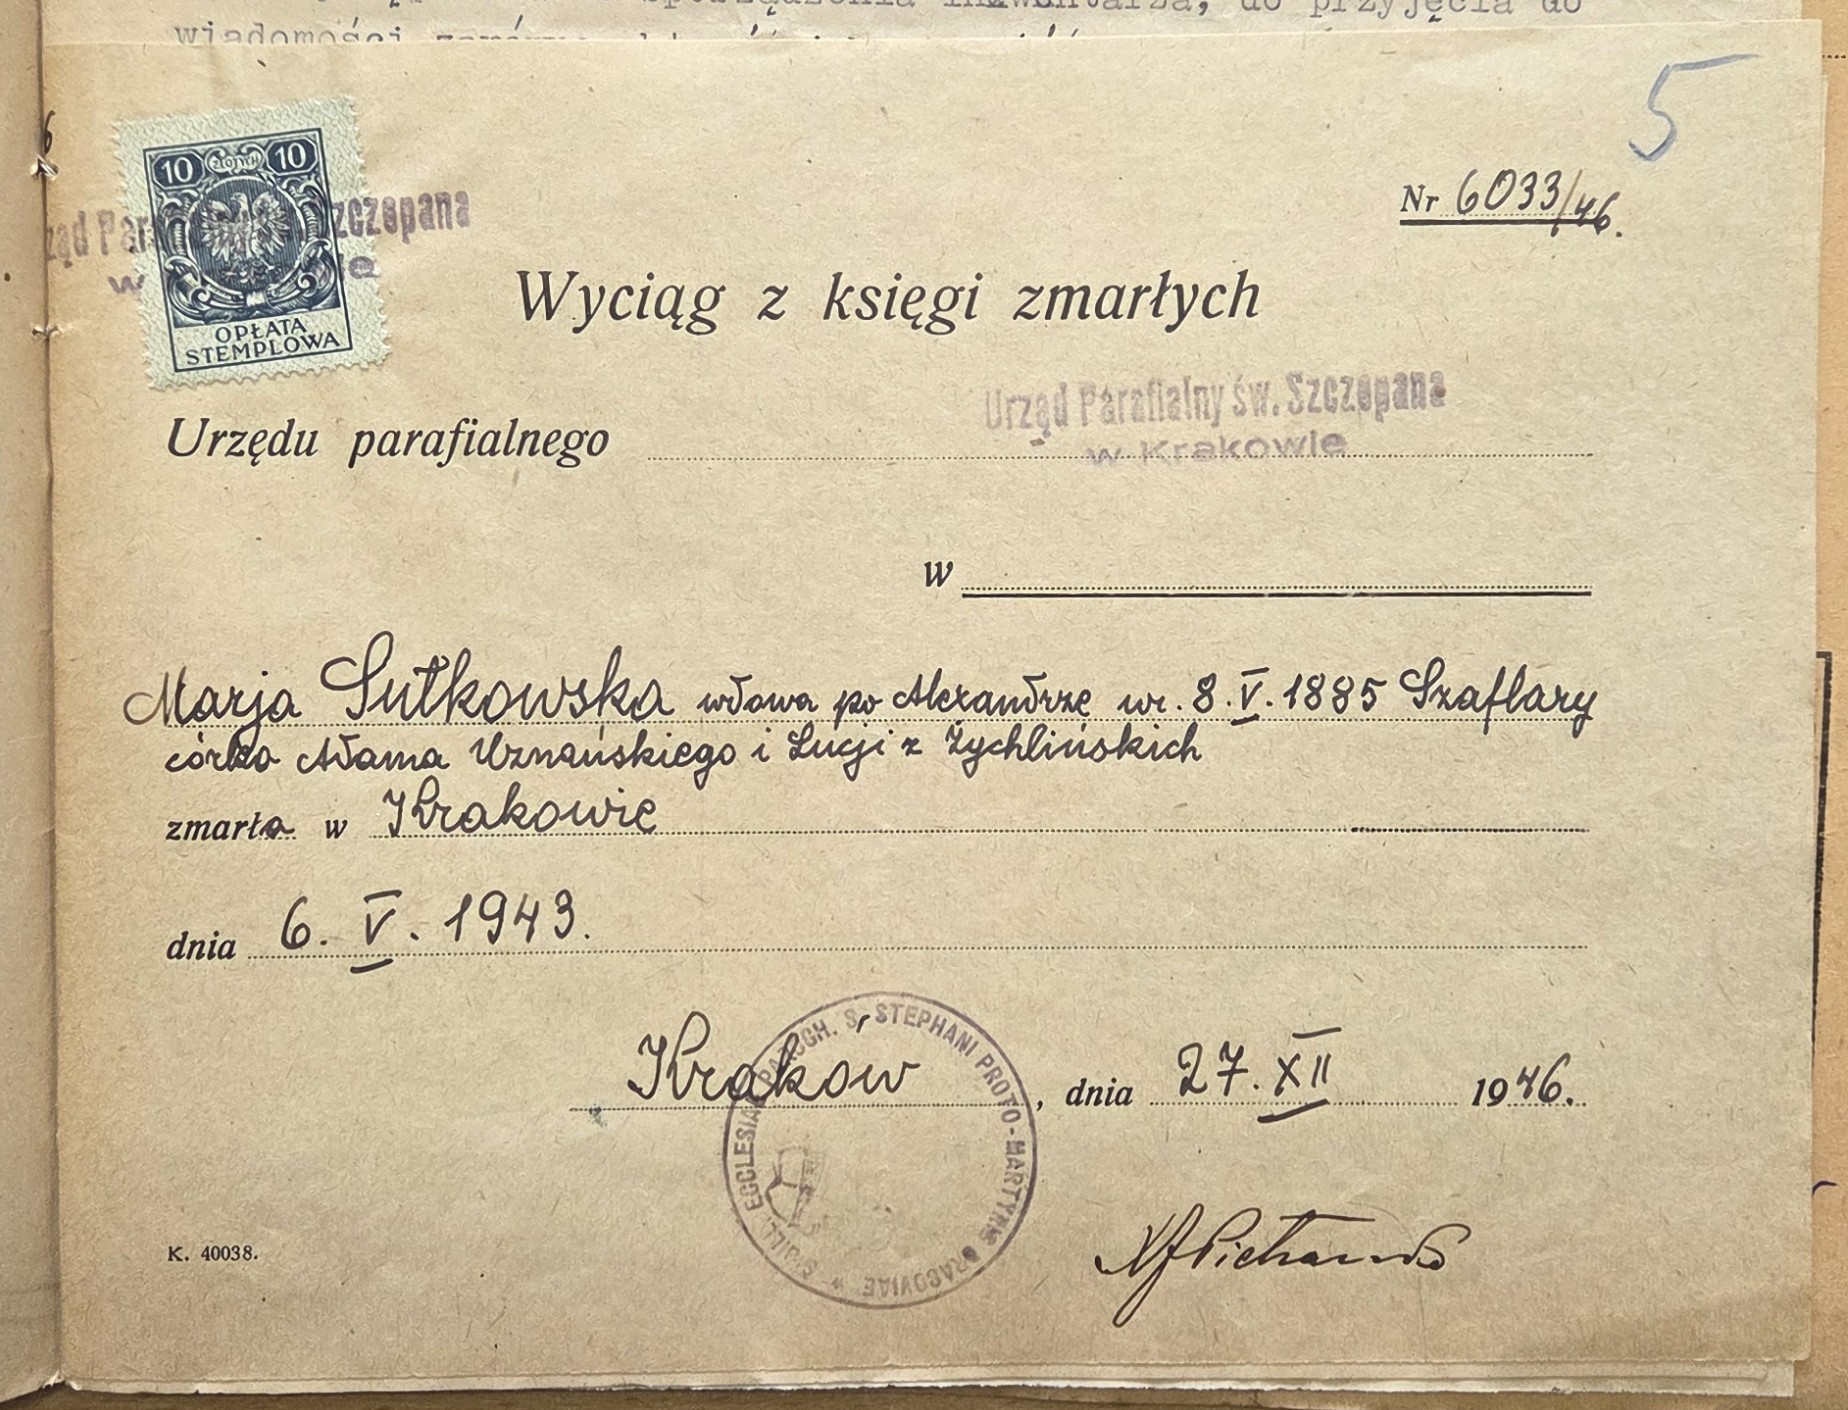 sporządzenia inwentarza, do przyjęcia do
wiadomości
5
Nr 6033/46.
10 ZŁOTYCH 10
OPŁATA
STEMPLOWA
Szczepana
w
Wyciąg z księgi zmarłych
Urząd Parafialny św. Szczepana
w Krakowie
Urzędu parafialnego
w
Marja Sutkowska wdowa po Alexandrze ur. 8. V. 1885 Szaflary
córka Adama Uznańskiego i Lucji z Żychlińskich
zmarła w Krakowie
dnia 6. V. 1943.
Kraków, dnia 27. XII 1946.
ECCLESIAE PAROCH. S. STEPHANI PROTO-MARTYRIS CRACOVIAE
K. 40038.